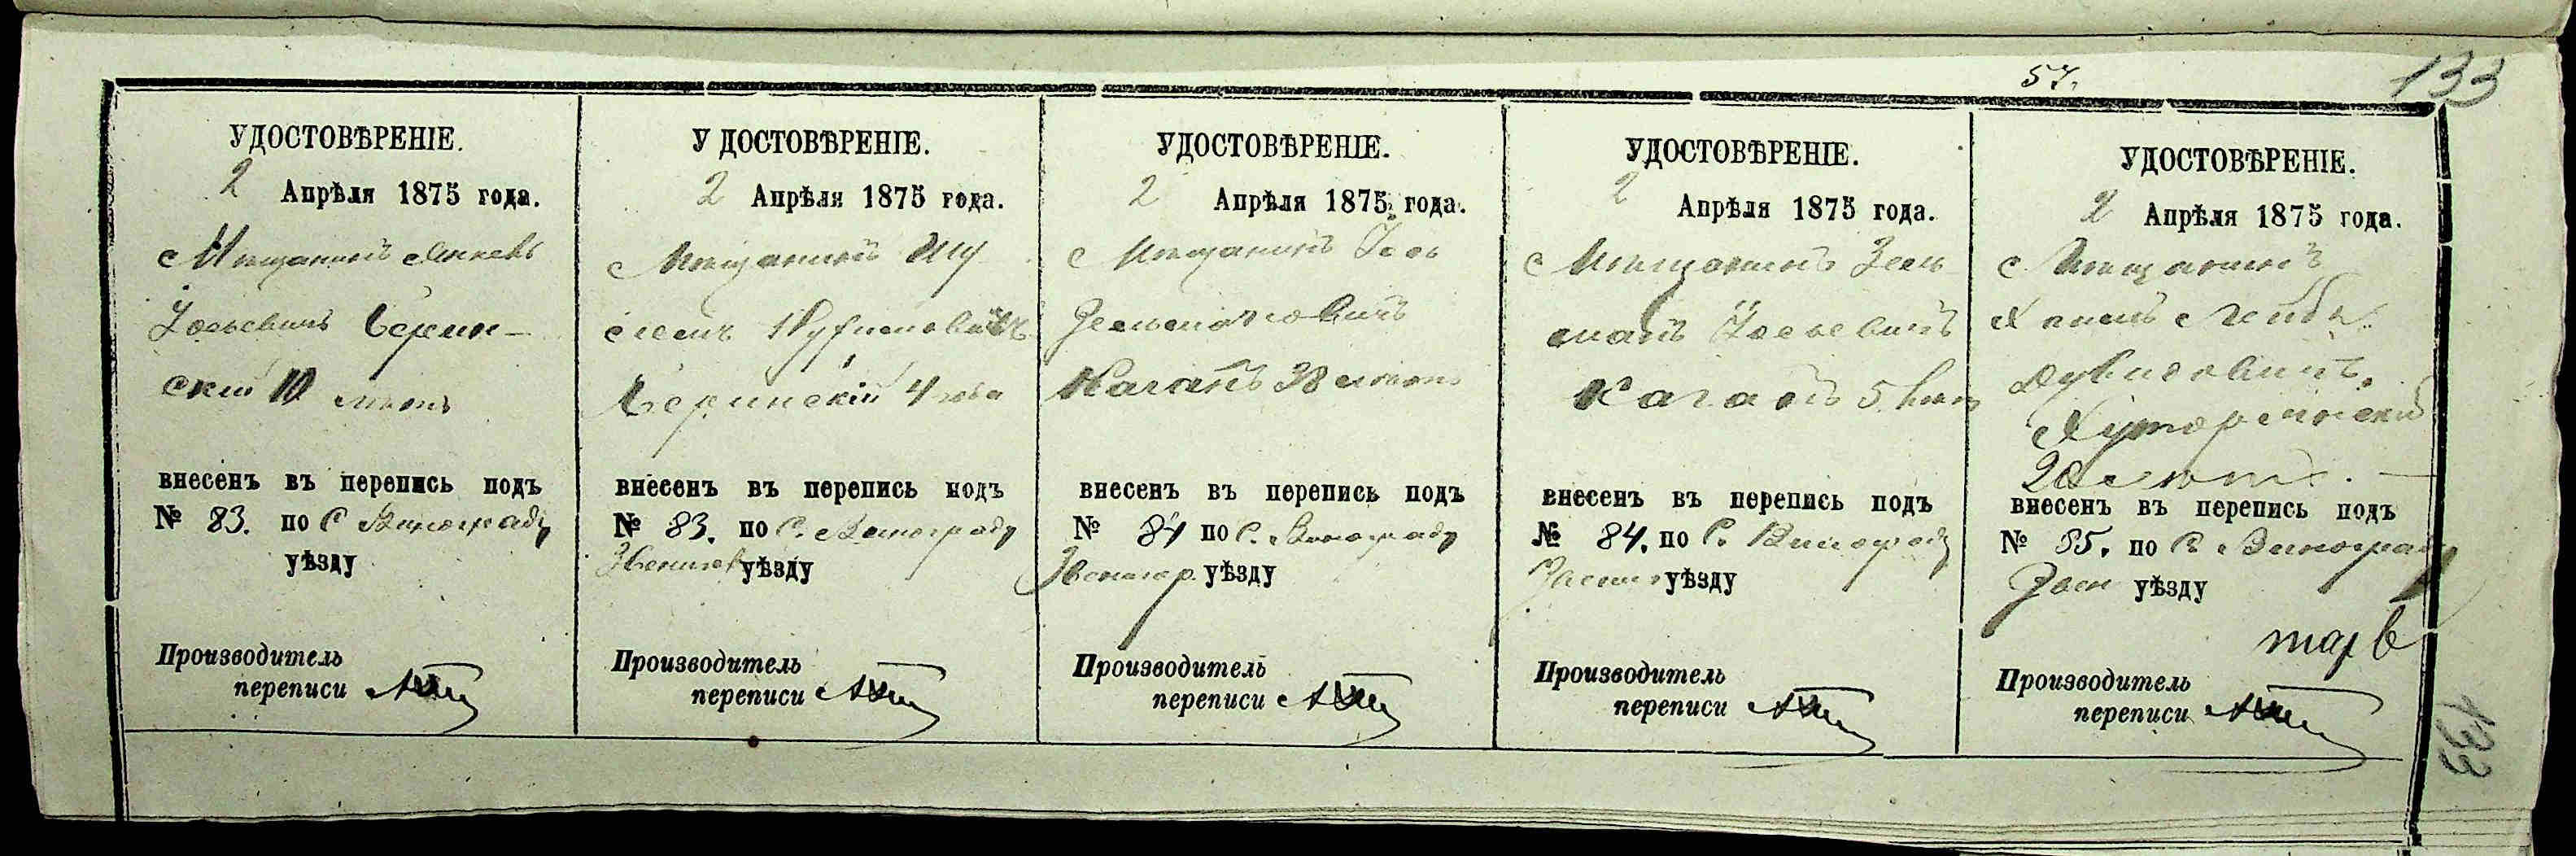 57.
133
УДОСТОВѢРЕНІЕ.
2 Апрѣля 1875 года.
Мещанинъ Янкель
Іосьевичъ Берин-
скій 10 лѣтъ
внесенъ въ перепись подъ
№ 83. по С Винограду
уѣзду
Производитель
переписи
УДОСТОВѢРЕНІЕ.
2 Апрѣля 1875 года.
Мещанинъ Шу
Беринскій 4 года
внесенъ въ перепись подъ
№ 83. по С. Винограду
Звениг уѣзду
Производитель
переписи
УДОСТОВѢРЕНІЕ.
2 Апрѣля 1875 года.
Мещанинъ Іось
Зельмановичъ
Каганъ 38 лѣтъ
внесенъ въ перепись подъ
№ 84 по С. Винограду
Звенигор. уѣзду
Производитель
переписи
УДОСТОВѢРЕНІЕ.
2 Апрѣля 1875 года.
Мещанинъ Зель
манъ Іосьевичъ
Каганъ 5 лѣтъ
внесенъ въ перепись подъ
№ 84. по С. Винограду
Звениг уѣзду
Производитель
переписи
УДОСТОВѢРЕНІЕ.
2 Апрѣля 1875 года.
Мещанинъ
Хаимъ Лейба
Дувидовичъ
Хуторянскій
20 лѣтъ.
внесенъ въ перепись подъ
№ 85. по С. Винограду
Звен уѣзду
Производитель
переписи
133